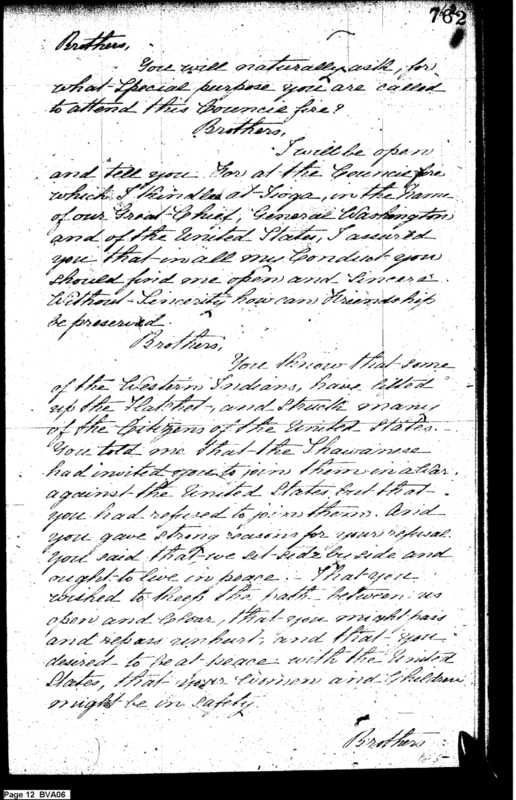 762
Brothers,
You will naturally ask, for
what special purpose you are called
to attend this Council fire?
Brothers,
I will be open
and tell you. For at the Council fire
which I kindled at Tioga, in the Name
of our Great Chief, General Washington
and of the United States, I assured
you that in all my Conduct you
should find me open and Sincere
Without Sincerity how can Friendship
be preserved.
Brothers,
You Know that some
of the Western Indians, have lifted
up the Hatchet, and Struck many
of the Citizens of the United States.
You told me that the Shawanese
had invited you to join them in a War
against the United States, but that
you had refused to join them. And
you gave strong reasons for your refusal
You said that we set side by side and
ought to live in peace. - That you
wished to keep the path between us
open and Clear, that you might pass
and repass unhurt; and that you
desired to be at peace with the United
States, that your Women and Children
might be in safety.
Brothers
Page 12 BVA06